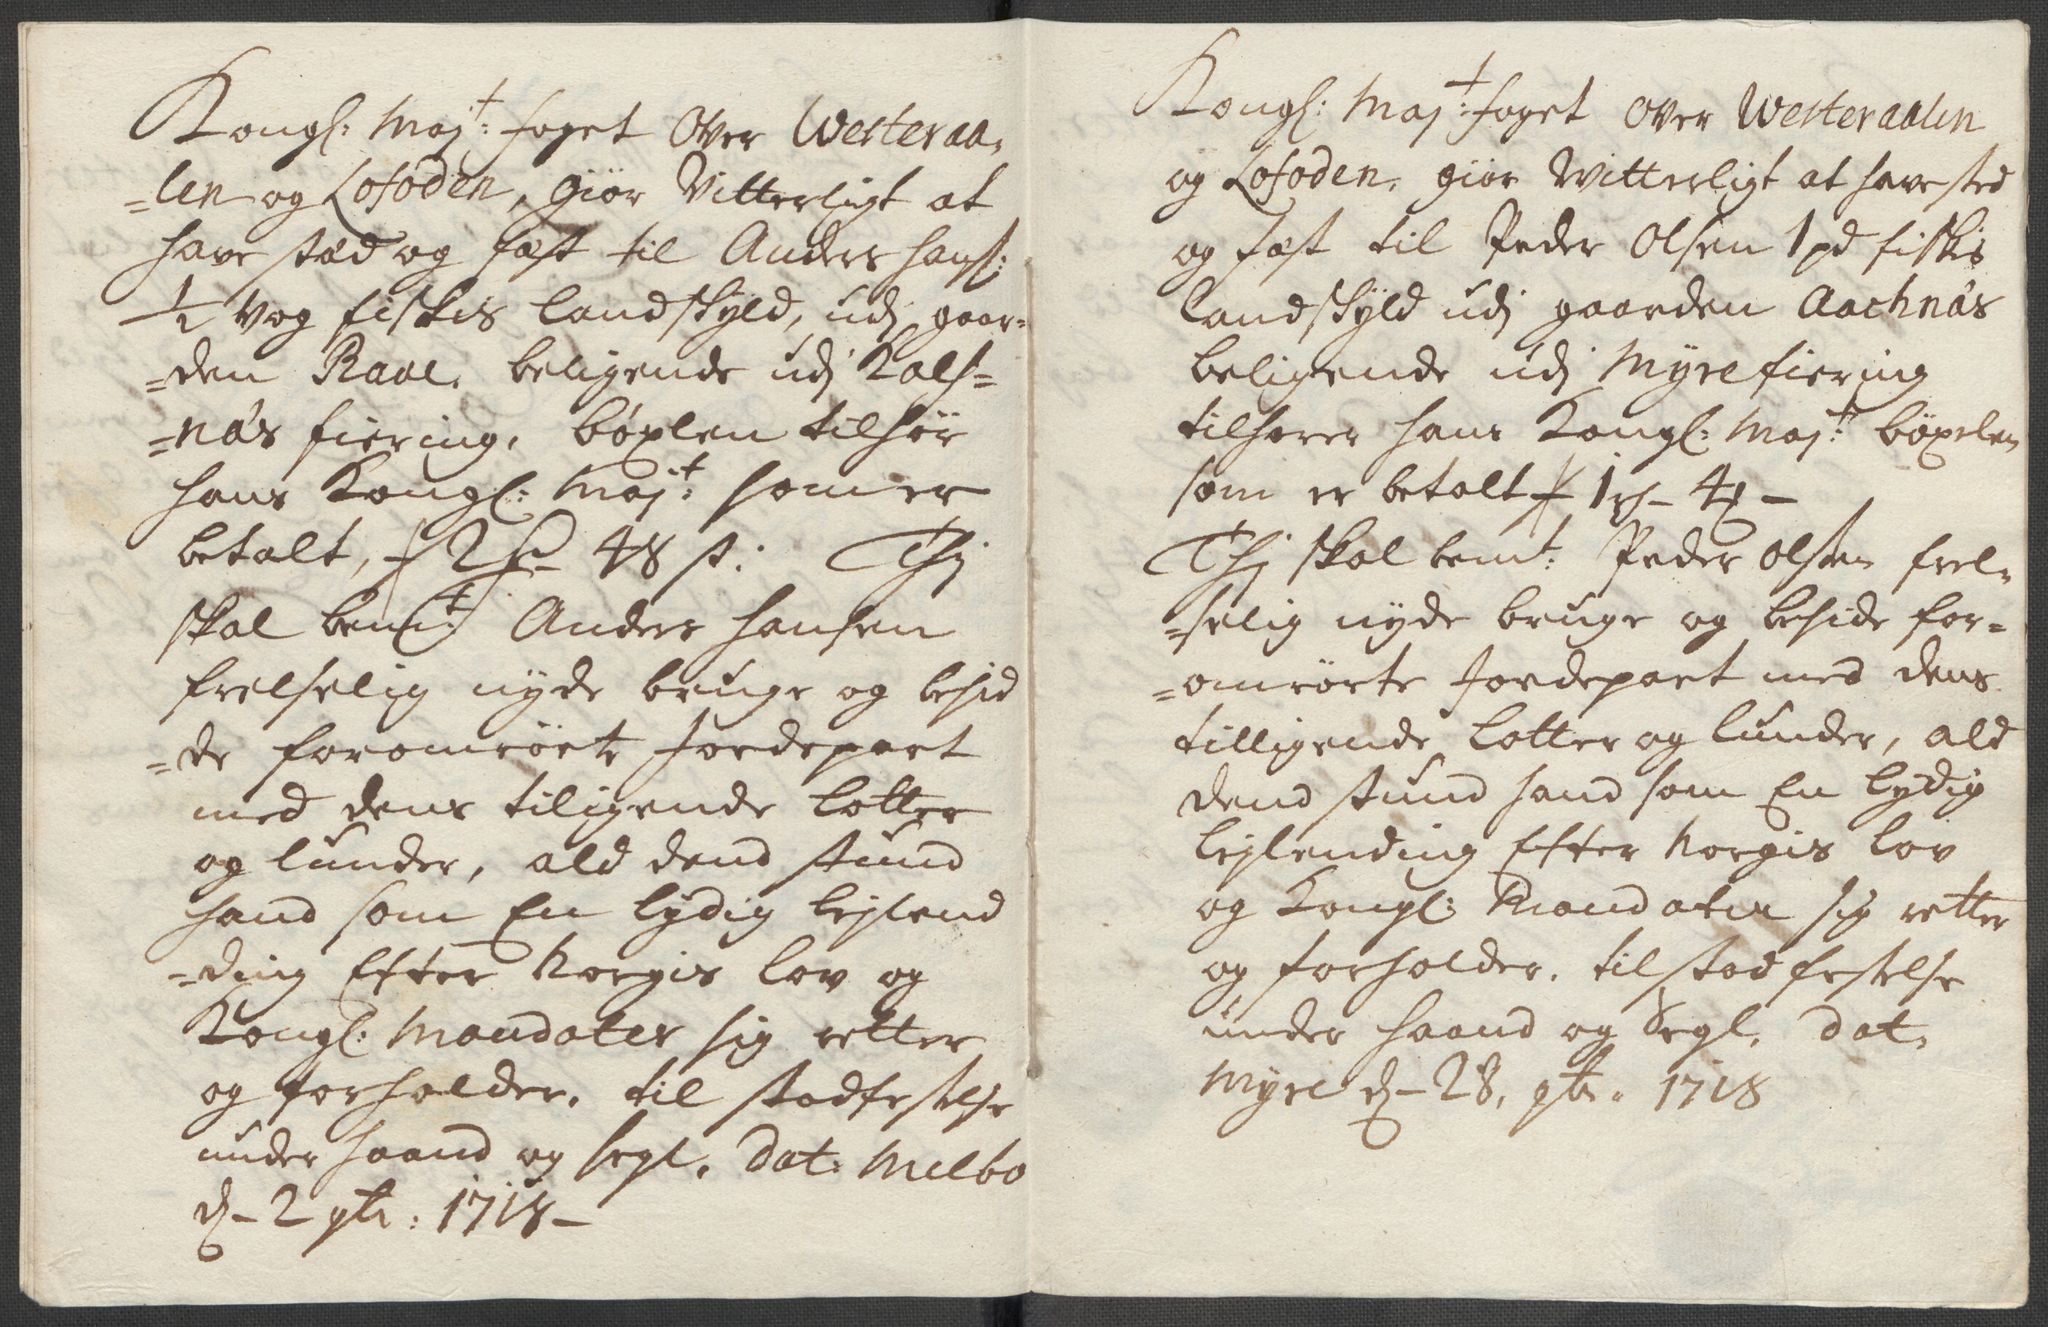 Kongl: Maj:t foget over Westeraa-
=len og Lofoden, giør Vitterligt at
have stæd og fæst til Anders Hanß:
1/2 Vog fiskis landskyld, udj gaar-
=den Raae, beligende udj Kals-
=næs fiering, bøxlen tilhör
hans Kongl: Maj:t som er
betalt, 48 s: Thj
skal bem:t Anders Hansen
frelselig nyde bruge og besid
=de foromrörte Jordepart
med dens tiligende lotter
og lunder, ald dend stund
hand som En lydig lejlend
=ding Efter Norgis lov og
Kongl: Mandater sig retter
og forholder. til stadfestelse
under haand og segl. Dat: Melbo
d- 2 9br: 1718-
Kongl: Maj:t foget over Westeraalen
og Lofoden, giør Witterligt at have sted
og fæst til Peder Olsen 1 pd fiskis
landskyld udj gaarden Aachnæs
beligende udj Myre fiering
tilhører hans Kongl: Maj:t böxelen
som er betalt 1 - 4 -
Thj skal bem:t Peder Olsen frel-
=selig nyde bruge og beside for-
=omrörte Jordepart med dens
tilligende lotter og lunder, ald
dend stund hand som En lydig
lejlending Efter Norgis lov
og Kongl: Mandater sig retter
og forholder. til stadfestelse
under haand og Segl. Dat.
Myre d- 28. 9br. 1718